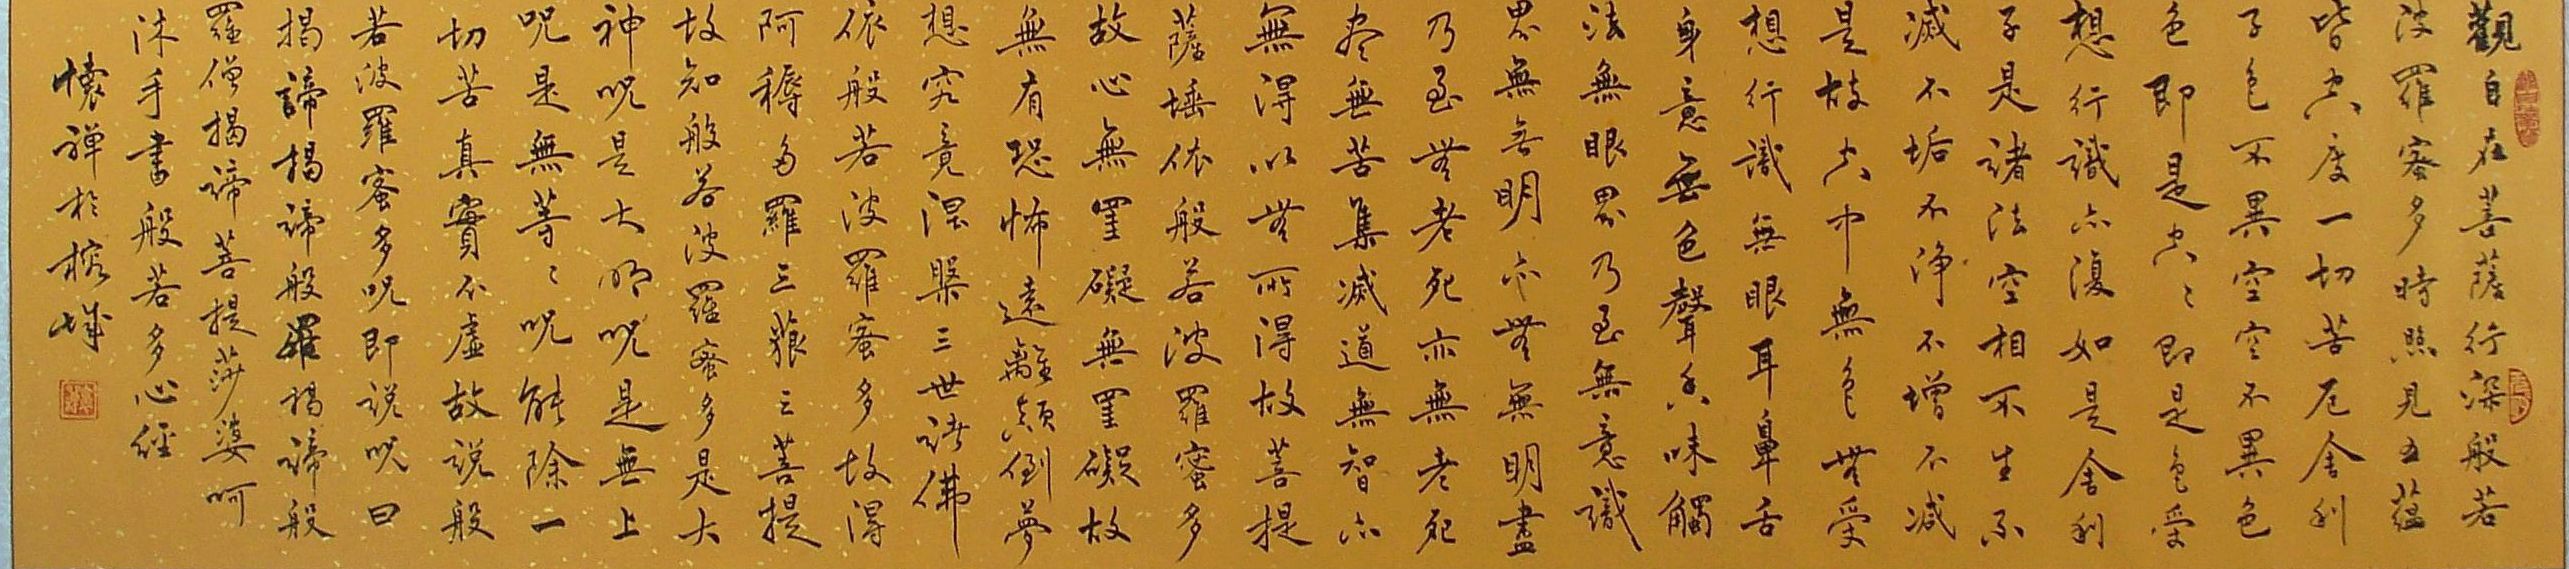 觀自在菩薩行深般若
波羅蜜多時照見五蘊
皆空度一切苦厄舍利
子色不異空空不異色
色即是空〻即是色受
想行識亦復如是舍利
子是諸法空相不生不
滅不垢不淨不增不減
是故空中無色無受
想行識無眼耳鼻舌
身意無色聲香味觸
法無眼界乃至無意識
界無無明亦無無明盡
乃至無老死亦無老死
尽無苦集滅道無智亦
無得以無所得故菩提
薩埵依般若波羅蜜多
故心無罣礙無罣礙故
無有恐怖遠離顛倒夢
想究竟涅槃三世諸佛
依般若波羅蜜多故得
阿耨多羅三藐三菩提
故知般若波羅蜜多是大
神呪是大明呪是無上
呪是無等〻呪能除一
切苦真實不虛故説般
若波羅蜜多呪即説呪曰
揭諦揭諦般羅揭諦般
羅僧揭諦菩提莎婆呵
沐手書般若多心經
懷禪於榕城